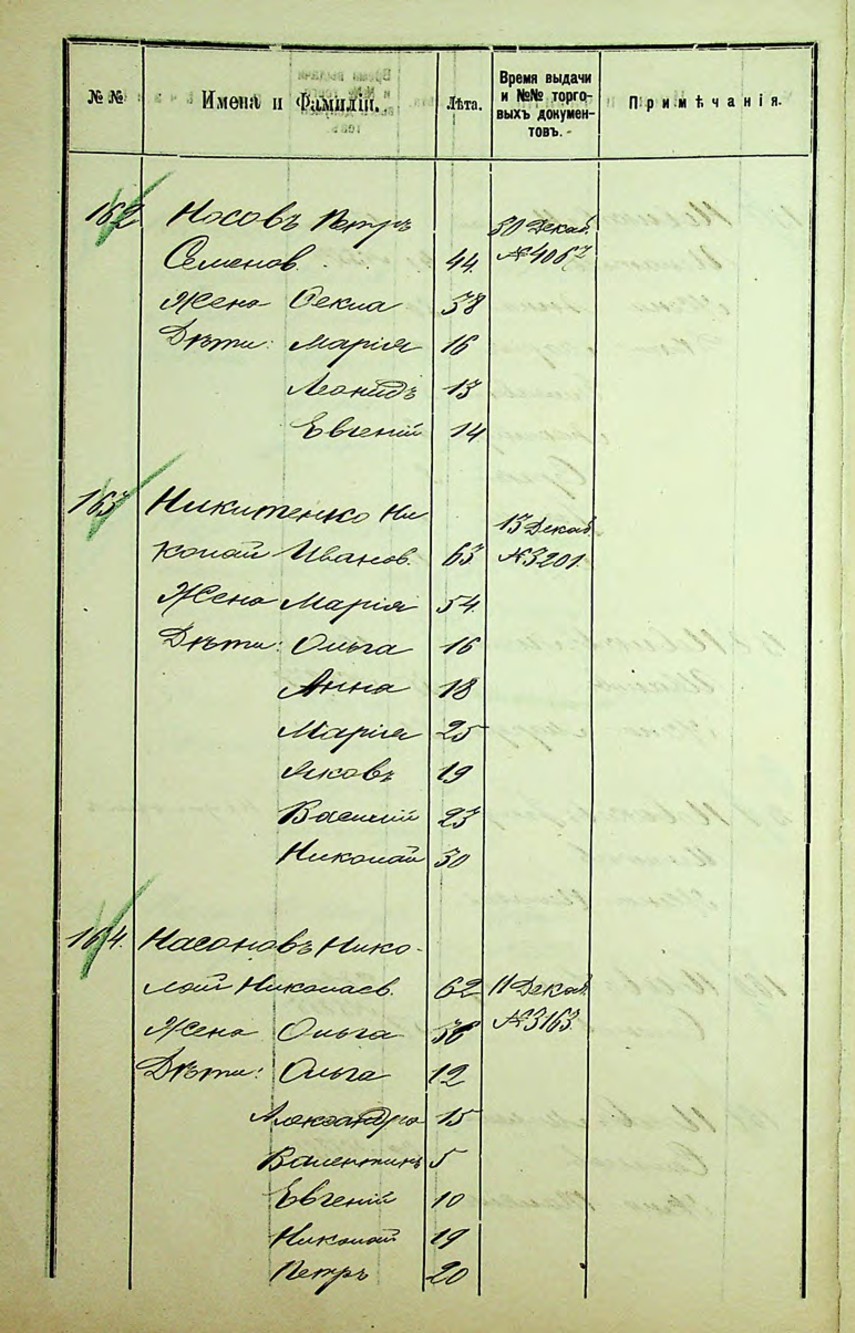 №№ Имена и Фамиліи. Лѣта. Время выдачи и №№ торго- выхъ докумен- товъ. Примѣчанія.
162 Носовъ Петръ 30 Декаб.
Семенов. 44 №4067
Жена Фекла 38
Дѣти: Марія 16
Леонидъ 13
Евгеній 14
163 Никитенко Ни 13 Декаб.
колай Иванов. 63 №3201.
Жена Марія 54.
Дѣти: Ольга 16
Анна 18
Марія 25
Яковъ 19
Василій 23
Николай 30
164. Насоновъ Нико-
лай Николаев. 62 11 Декаб.
Жена Ольга 36 №3163.
Дѣти: Ольга 12
Александра 15
Валентинъ 5
Евгеній 10
Николай 19
Петръ 20